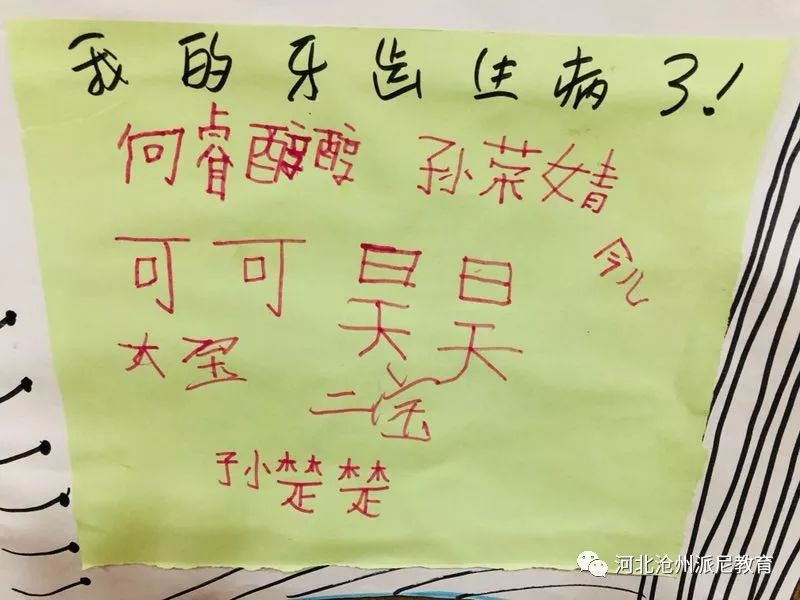 我的牙齿生病了!
何睿醇醇 孙菜婧
可可 昊昊
今儿
大宝
二宝
孙楚楚
河北沧州派尼教育